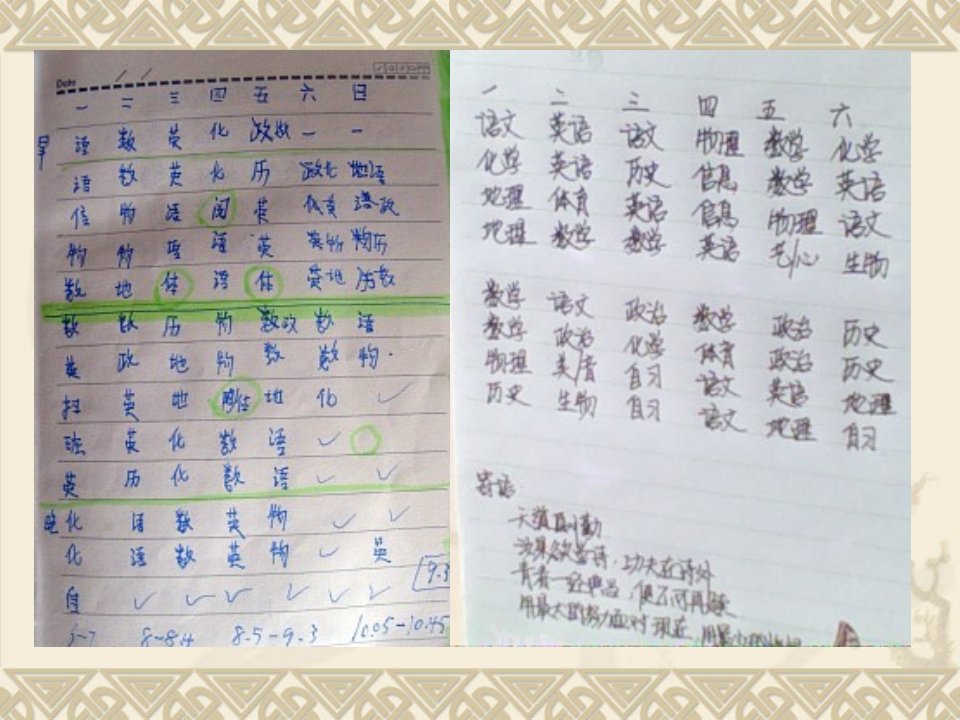 Date
一 二 三 四 五 六 日
早 语 数 英 化 政数 一 一
语 数 英 化 历 政化 地语
信 物 语 阅 英 化英 语政
物 物 语 英 英物 物历
数 地 体 语 体 英地 历数
数 数 历 物 数政 数 语
英 政 地 物 数 数 物
扫 英 地 地 化 ✓
班 英 化 数 语 ✓
英 历 化 数 语 ✓ ✓
化 语 数 英 物 ✓ ✓
化 语 数 英 物 ✓ 英
自 ✓ ✓ ✓ ✓ ✓ ✓ ✓
8-8.4 8.5-9.3 10.05-10.45
一 二 三 四 五 六
语文 英语 语文 物理 数学 化学
化学 英语 历史 信息 数学 英语
地理 体育 英语 信息 物理 语文
地理 数学 数学 英语 艺/心 生物
数学 语文 政治 数学 政治 历史
数学 政治 化学 体育 政治 历史
物理 美/音 自习 语文 英语 地理
历史 生物 自习 语文 地理 自习
寄语:
天道酬勤
汝果欲学诗,功夫在诗外
青春一经典当,便不可再赎
用最大的努力面对现在